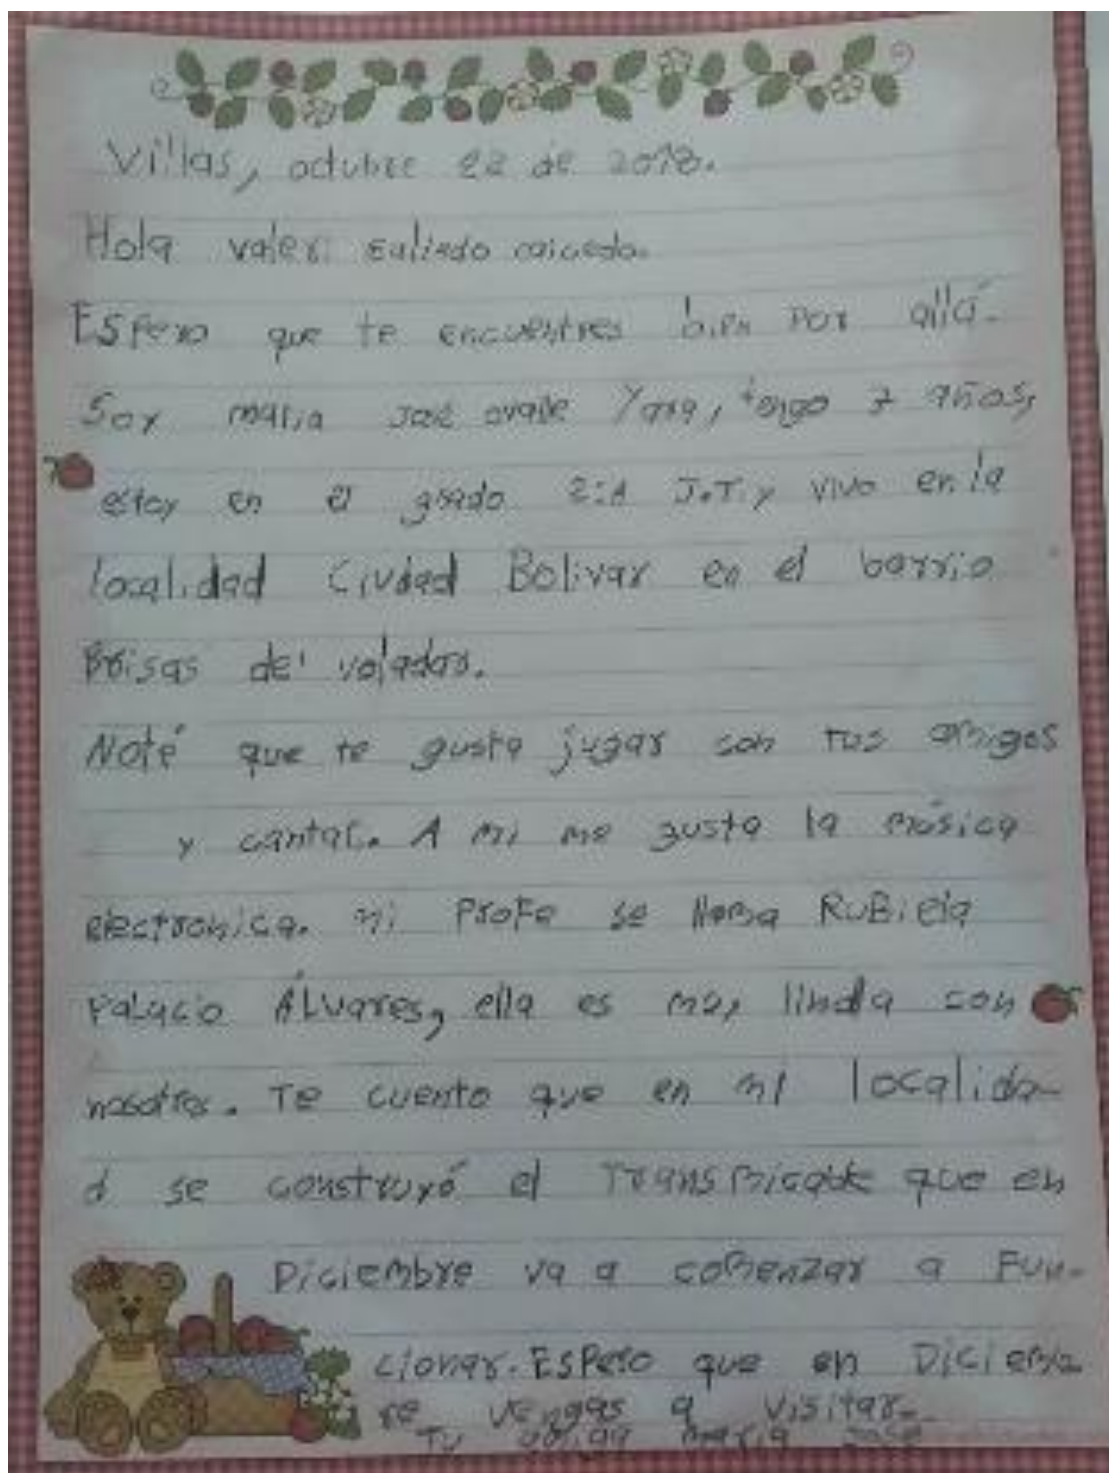 Villas, octubre 22 de 2018.
Hola valeri salisdo caicedo.
Espero que te encuentres bien por allá.
Soy maria José ovalle Yara, tengo 7 años,
estoy en el grado 2:A J.T. y vivo en la
localidad Ciudad Bolivar en el barrio
Brisas del volador.
Noté que te gusta jugar con tus amigos
y cantar. A mi me gusta la música
electronica. mi Profe se llama RuBiela
Palacio Álvares, ella es muy linda con
nosotros. Te cuento que en mi localida-
d se construyó el Transmicable que en
Diciembre va a comenzar a Fun-
cionar. Espero que en Diciemb
re vengas a visitar.
Tu amiga maria José